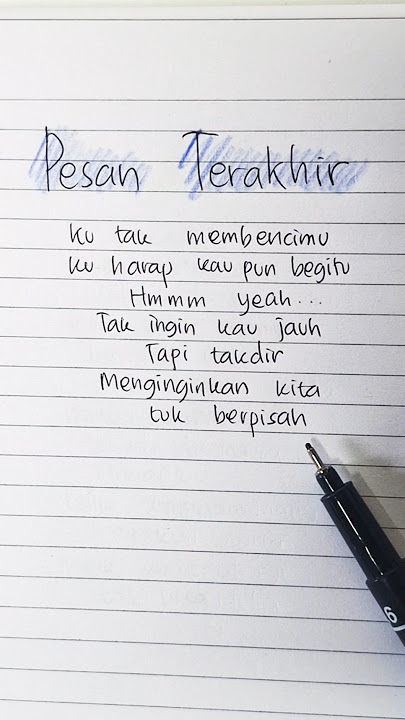 Pesan Terakhir
Ku tak membencimu
ku harap kau pun begitu
Hmmm yeah...
Tak ingin kau jauh
Tapi takdir
Menginginkan kita
tuk berpisah
6